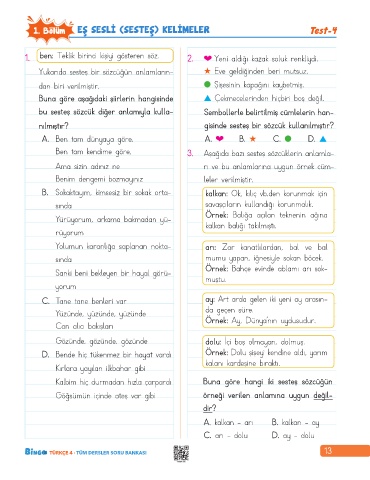 1. Bölüm EŞ SESLİ (SESTEŞ) KELİMELER Test-4
1. ben: Teklik birinci kişiyi gösteren söz.
Yukarıda sesteş bir sözcüğün anlamların-
dan biri verilmiştir.
Buna göre aşağıdaki şiirlerin hangisinde
bu sesteş sözcük diğer anlamıyla kulla-
nılmıştır?
A. Ben tam dünyaya göre,
Ben tam kendime göre,
Ama sizin adınız ne
Benim dengemi bozmayınız
B. Sokaktayım, kimsesiz bir sokak orta-
sında
Yürüyorum, arkama bakmadan yü-
rüyorum
Yolumun karanlığa saplanan nokta-
sında
Sanki beni bekleyen bir hayal görü-
yorum
C. Tane tane benleri var
Yüzünde, yüzünde, yüzünde
Can alıcı bakışları
Gözünde, gözünde, gözünde
D. Bende hiç tükenmez bir hayat vardı
Kırlara yayılan ilkbahar gibi
Kalbim hiç durmadan hızla çarpardı
Göğsümün içinde ateş var gibi
2. ♥ Yeni aldığı kazak soluk renkliydi.
★ Eve geldiğinden beri mutsuz.
● Şişesinin kapağını kaybetmiş.
▲ Çekmecelerinden hiçbiri boş değil.
Sembollerle belirtilmiş cümlelerin han-
gisinde sesteş bir sözcük kullanılmıştır?
A. ♥ B. ★ C. ● D. ▲
3. Aşağıda bazı sesteş sözcüklerin anlamla-
rı ve bu anlamlarına uygun örnek cüm-
leler verilmiştir.
kalkan: Ok, kılıç vb.den korunmak için
savaşçıların kullandığı korunmalık.
Örnek: Balığa açılan teknenin ağına
kalkan balığı takılmıştı.
arı: Zar kanatlılardan, bal ve bal
mumu yapan, iğnesiyle sokan böcek.
Örnek: Bahçe evinde ablamı arı sok-
muştu.
ay: Art arda gelen iki yeni ay arasın-
da geçen süre.
Örnek: Ay, Dünya'nın uydusudur.
dolu: İçi boş olmayan, dolmuş.
Örnek: Dolu şişeyi kendine aldı, yarım
kalanı kardeşine bıraktı.
Buna göre hangi iki sesteş sözcüğün
örneği verilen anlamına uygun değil-
dir?
A. kalkan - arı B. kalkan - ay
C. arı - dolu D. ay - dolu
BiNGO TÜRKÇE 4 - TÜM DERSLER SORU BANKASI 13